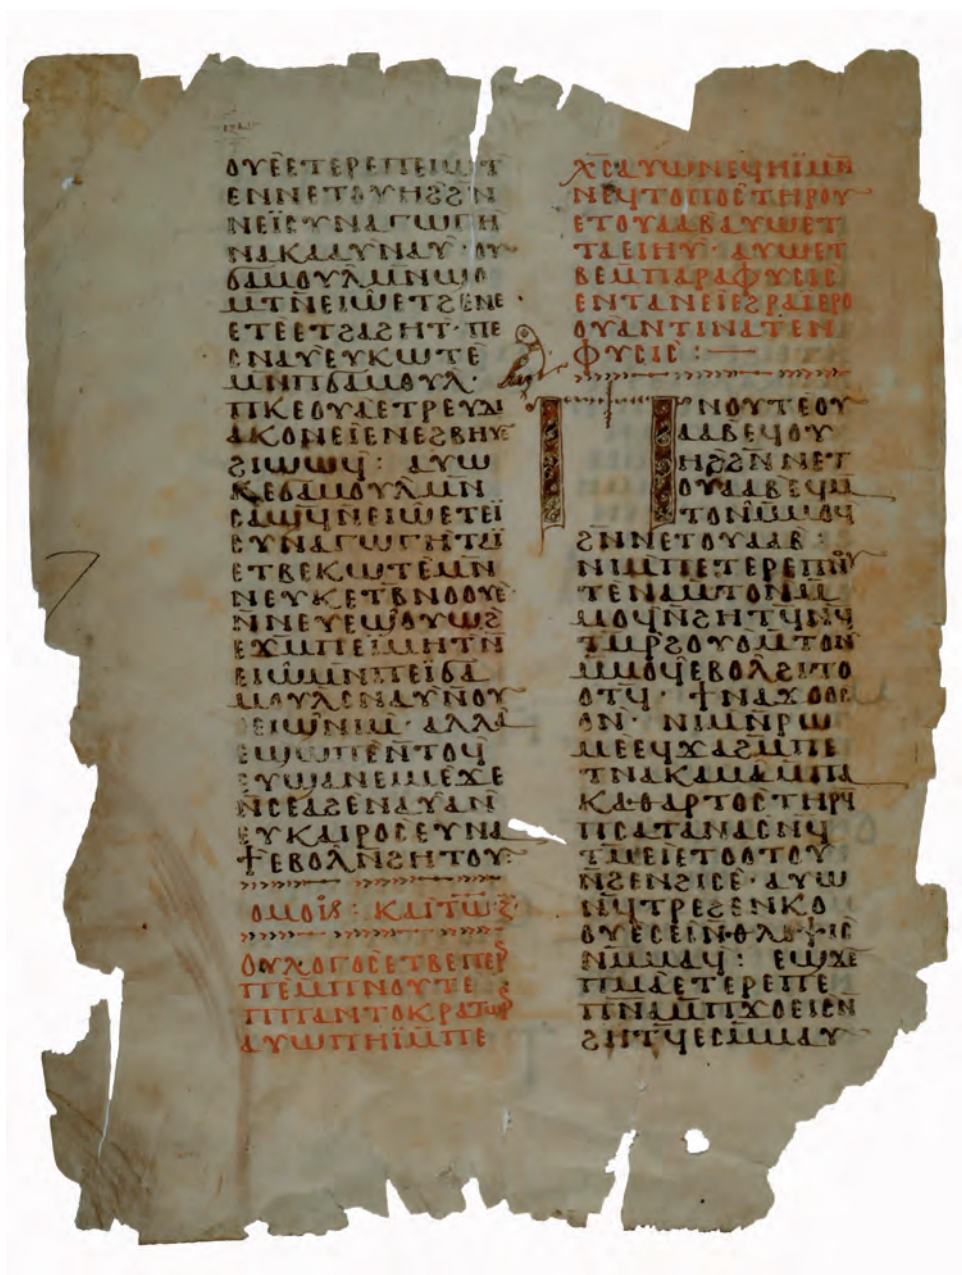 ⲟⲩⲉⲉⲧⲉⲣⲉⲡⲉⲓⲱⲧ
ⲉⲛⲛⲉⲧⲟⲩⲏϩϩⲛ
ⲛⲉⲓ̈ⲥⲩⲛⲁⲅⲱⲅⲏ
ⲛⲁⲕⲁⲁⲩⲛⲁⲩ · ⲟⲩ
ϭⲁⲙⲟⲩⲗⲙⲛϣⲟ
ⲙⲧⲛ̄ⲉⲓⲱⲉⲧϩⲉⲛⲉ
ⲉⲧⲉⲉⲧϩⲁϩⲏⲧ · ⲡⲉ
ⲥⲛⲁⲩⲉⲩⲕⲱⲧⲉ
ⲙⲛⲡϭⲁⲙⲟⲩⲗ ·
ⲡⲕⲉⲟⲩⲁⲉⲧⲣⲉⲩⲇⲓ
ⲁⲕⲟⲛⲉⲓⲉⲛⲉϩⲃⲏⲩⲉ
ϩⲓⲱⲱϥ : ⲁⲩⲱ
ⲕⲉϭⲁⲙⲟⲩⲗⲙⲛ
ⲥⲁϣϥⲛⲉⲓⲱⲉⲧⲉⲓ̈
ⲥⲩⲛⲁⲅⲱⲅⲏⲧⲁⲓ̈
ⲉⲧⲃⲉⲕⲱⲧⲉⲙⲛ
ⲛⲉⲩⲕⲉⲧⲃⲛⲟⲟⲩⲉ
ⲛ̄ⲛⲉⲩⲉϣⲟⲩⲱϩ
ⲉϫⲙⲡⲉⲓⲙⲏⲧⲛ
ⲉⲓⲱⲙⲛⲡⲉⲓ̈ϭⲁ
ⲙⲟⲩⲗⲥⲛⲁⲩⲛⲟⲩ
ⲉⲓⲱⲛⲓⲙ · ⲁⲗⲗⲁ
ⲉϣⲱⲡⲉⲛⲧⲟϥ
ⲉⲩϣⲁⲛⲉⲙⲉϫⲉ
ⲛⲥⲉⲁϩⲉⲛⲁⲩⲁⲛ
ⲉⲩⲕⲁⲓⲣⲟⲥⲉⲩⲛⲁ
ϯⲉⲃⲟⲗⲛ̄ϩⲏⲧⲟⲩ ·
ⲟⲙⲟⲓⲱⲥ : ⲕⲁⲓⲧⲱ ⲍ̄
ⲟⲩⲗⲟⲅⲟⲥⲉⲧⲃⲉⲡⲉⲣ
ⲡⲉⲙⲡⲛⲟⲩⲧⲉ
ⲡⲡⲁⲛⲧⲟⲕⲣⲁⲧⲱⲣ
ⲁⲩⲱⲡⲏⲓ̈ⲙⲡⲉ
ⲭ̄ⲥⲁⲩⲱⲛⲉϥⲏⲓ̈ⲙⲛ
ⲛⲉϥⲧⲟⲡⲟⲥⲧⲏⲣⲟⲩ
ⲉⲧⲟⲩⲁⲁⲃⲁⲩⲱⲉⲧ
ⲧⲁⲉⲓⲏⲩ · ⲁⲩⲱⲉⲧ
ⲃⲉⲙ̄ⲡⲁⲣⲁⲫⲩⲥⲓⲥ
ⲉⲛⲧⲁⲛⲉⲓ̈ⲉϩⲣⲁⲓⲉⲣⲟ
ⲟⲩⲁⲛⲧⲓⲛⲁⲧⲉⲛ
ⲫⲩⲥⲓⲥ :
ⲡⲛⲟⲩⲧⲉⲟⲩ
ⲁⲁⲃⲉϥⲟⲩ
ⲏϩϩⲛ̄ⲛⲉⲧ
ⲟⲩⲁⲁⲃⲉϥⲙ
ⲧⲟⲛⲙ̄ⲙⲟϥ
ϩⲛⲛⲉⲧⲟⲩⲁⲁⲃ :
ⲛⲓⲙⲡⲉⲧⲉⲣⲉⲡⲛⲟⲩ
ⲧⲉⲛⲁⲙⲧⲟⲛⲙ̄
ⲙⲟϥⲛϩⲏⲧϥⲛϥ
ⲧⲙⲣϩⲟⲩⲟⲙⲧⲟⲛ
ⲙⲙⲟϥⲉⲃⲟⲗϩⲓⲧⲟ
ⲟⲧϥ · ϯⲛⲁϫⲟⲟⲥ
ⲟⲛ · ⲛⲓⲙⲛⲣⲱ
ⲙⲉⲉϥϫⲁϩⲙⲡⲉ
ⲧⲛⲁⲕⲁⲙⲁⲙⲡⲁ
ⲕⲁⲑⲁⲣⲧⲟⲥⲧⲏⲣϥ
ⲡⲥⲁⲧⲁⲛⲁⲥⲛϥ
ⲧⲙⲉⲓⲉⲧⲟⲟⲧⲟⲩ
ⲛϩⲉⲛϩⲓⲥⲉ · ⲁⲩⲱ
ⲛϥⲧⲣⲉϩⲉⲛⲕⲟ
ⲟⲩⲉϣⲉⲓⲛⲑⲗⲓⲯⲓⲥ
ⲛⲙⲙⲁϥ : ⲉϣϫⲉ
ⲡⲙⲁⲉⲧⲉⲣⲉⲡⲉ
ⲡⲛ̄ⲁⲙⲡϫⲟⲉⲓⲥⲛ
ϩⲏⲧϥⲉⲥⲙⲙⲁⲩ